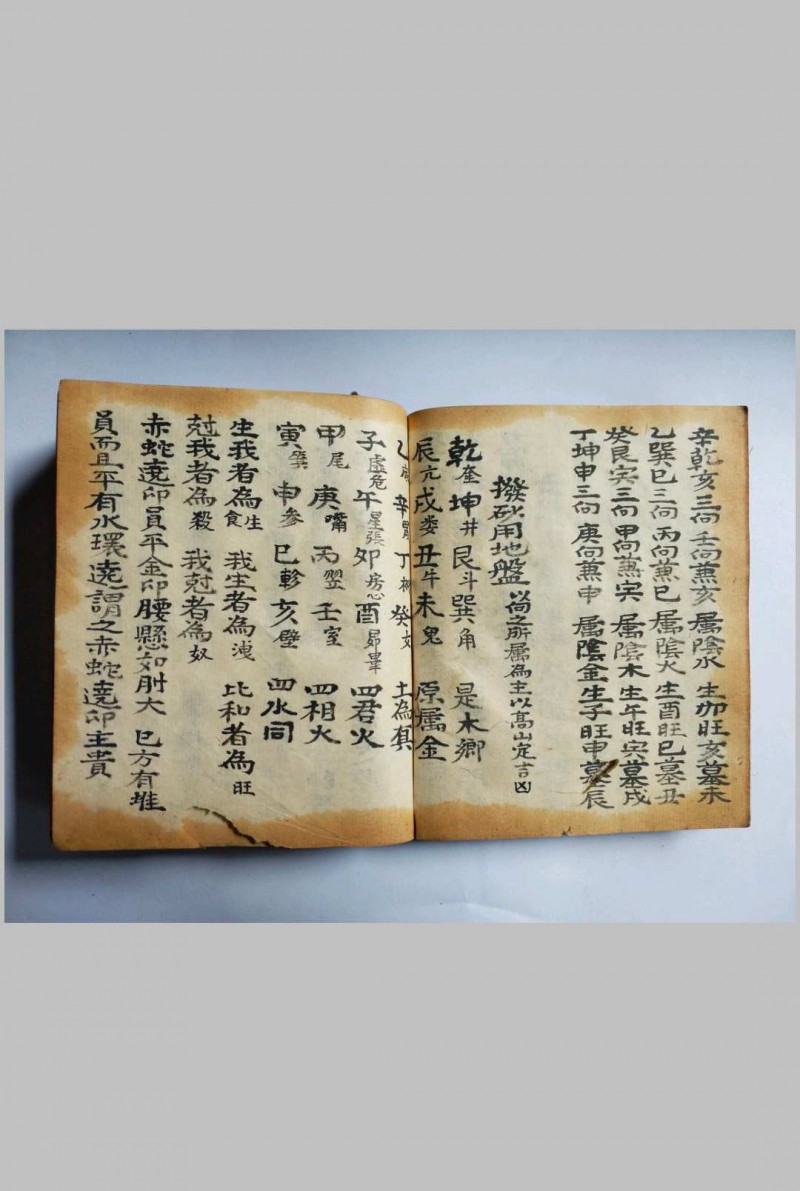 辛乾亥三向 壬向兼亥 属陰水 生卯旺亥墓未
乙巽巳三向 丙向兼巳 属陰火 生酉旺巳墓丑
癸艮寅三向 甲向兼寅 属陰木 生午旺寅墓戌
丁坤申三向 庚向兼申 属陰金 生子旺申墓辰
撥砂用地盤 以向之所属為主以高山定吉凶
乾奎坤井艮斗巽角 是木鄉
辰亢戌娄丑牛未鬼 原属金
乙 辛胃丁柳癸女 土為真
子虛危午星張卯房心酉昴畢 四君火
甲尾庚嘴丙翌壬室 四相火
寅箕申参巳軫亥壁 四水同
生我者為生食 我生者為洩 比和者為旺
尅我者為殺 我尅者為奴
赤蛇遶印員平金印腰懸如肘大 巳方有堆
員而且平有水環遶謂之赤蛇遶印主貴